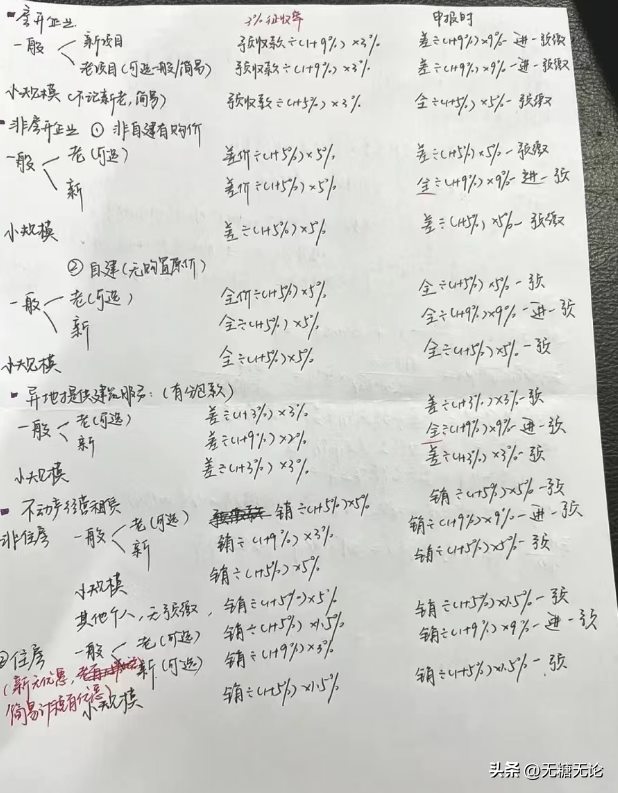 房开企业 3%征收率 申报时
一般 新项目 预收款÷(1+9%)×3% 差÷(1+9%)×9%-进-预缴
老项目(可选一般/简易) 预收款÷(1+9%)×3% 差÷(1+9%)×9%-进-预缴
小规模 (不论新老,简易) 预收款÷(1+5%)×3% 全÷(1+5%)×5%-预缴
非房开企业 ① 非自建有购价
一般 老(可选) 差价÷(1+5%)×5% 差÷(1+5%)×5%-预缴
新 差价÷(1+5%)×5% 全÷(1+9%)×9%-进-预
小规模 差÷(1+5%)×5% 差÷(1+5%)×5%-预缴
② 自建(无购置原价)
一般 老(可选) 全价÷(1+5%)×5% 全÷(1+5%)×5%-预
新 全÷(1+5%)×5% 全÷(1+9%)×9%-进-预
小规模 全÷(1+5%)×5% 全÷(1+5%)×5%-预
异地提供建筑服务:(有分包款)
一般 老(可选) 差÷(1+3%)×3% 差÷(1+3%)×3%-预
新 差÷(1+9%)×2% 全÷(1+9%)×9%-进-预
小规模 差÷(1+3%)×3% 差÷(1+3%)×3%-预
不动产经营租赁
非住房 一般 老(可选) 销÷(1+5%)×5% 销÷(1+5%)×5%-预
新 销÷(1+9%)×3% 销÷(1+9%)×9%-进-预
小规模 销÷(1+5%)×5% 销÷(1+5%)×5%-预
其他个人,无预缴, 销÷(1+5%)×5%
②住房 一般 老(可选) 销÷(1+5%)×1.5% 销÷(1+5%)×1.5%-预
新(可选) 销÷(1+9%)×3% 销÷(1+9%)×9%-进-预
(新无优惠,
简易计税有优惠)
小规模 销÷(1+5%)×1.5% 销÷(1+5%)×1.5%-预
头条 @无糖无论